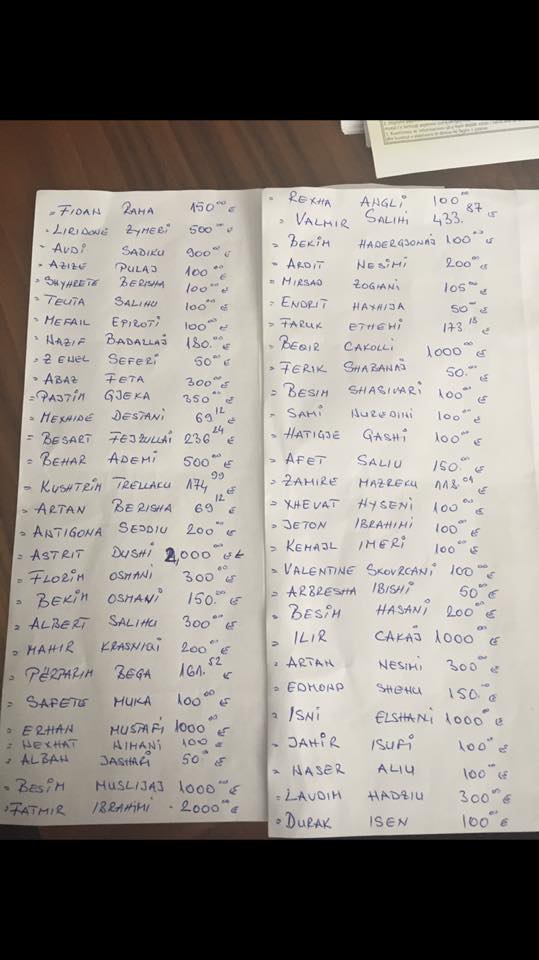 = FIDAN RAMA 150.00 €
= LIRIDONE ZYMERI 500.00 €
= AVDI SADIKU 900.00 €
= AZIZE PULAJ 100.00 €
= SHYHRETE BERISHA 100.00 €
= TEUTA SALIHU 100.00 €
= MEFAIL EPIROTI 100.00 €
= NAZIF BADALLAJ 180.00 €
= ZENEL SEFERI 50.00 €
= ABAZ FETA 300.00 €
= PAJTIM GJEKA 350.00 €
= MEXHIDE DESTANI 69.12 €
= BESART FEJZULLAI 236.24 €
= BEHAR ADEMI 500.00 €
= KUSHTRIM TRELLAKU 174.99 €
= ARTAN BERISHA 69.12 €
= ANTIGONA SEJDIU 200.00 €
= ASTRIT DUSHI 2,000.00 €
= FLORIM OSMANI 300.00 €
= BEKIM OSMANI 150.00 €
= ALBERT SALIHU 300.00 €
= MAHIR KRASNIQI 200.00 €
= PËRPARIM BEGA 161.52 €
= SAFETE MUKA 100.00 €
= ERHAN MUSTAFI 1000.00 €
= NEXHAT NIMANI 100.00 €
= ALBAN JASHARI 50.00 €
= BESIM MUSLIJAJ 1000.00 €
= FATMIR IBRAHIMI 2000.00 €
= REXHA ANGLI 100.00
= VALMIR SALIHI 433.87 €
= BEKIM HADERGJONAJ 100.00 €
= ARDIT NESIMI 200.00 €
= MIRSAD ZOGIANI 105.00 €
= ENDRIT HAXHIJA 50.00 €
= FARUK ETHEMI 173.18 €
= BEQIR CAKOLLI 1000.00 €
= FERIK SHABANAJ 50.00 €
= BESIM SHASIVARI 100.00 €
= SAMI NUREDINI 100.00 €
= HATIGJE GASHI 100.00 €
= AFET SALIU 150.00 €
= ZAMIRE MAZREKU 118.01 €
= XHEVAT HYSENI 100.00 €
= JETON IBRAHIMI 100.00 €
= KEMAJL IMERI 100.00 €
= VALENTINE SKOVRCANI 100.00 €
= ARBRESHA IBISHI 50.00 €
= BESIM HASANI 200.00 €
= ILIR CAKAJ 1000.00 €
= ARTAN NESIMI 300.00 €
= EDMOND SHEHU 150.00 €
= ISNI ELSHANI 1000.00 €
= JAHIR ISUFI 100.00 €
= NASER ALIU 100.00 €
= LAUDIM HADZIU 300.00 €
= DURAK ISEN 100.00 €